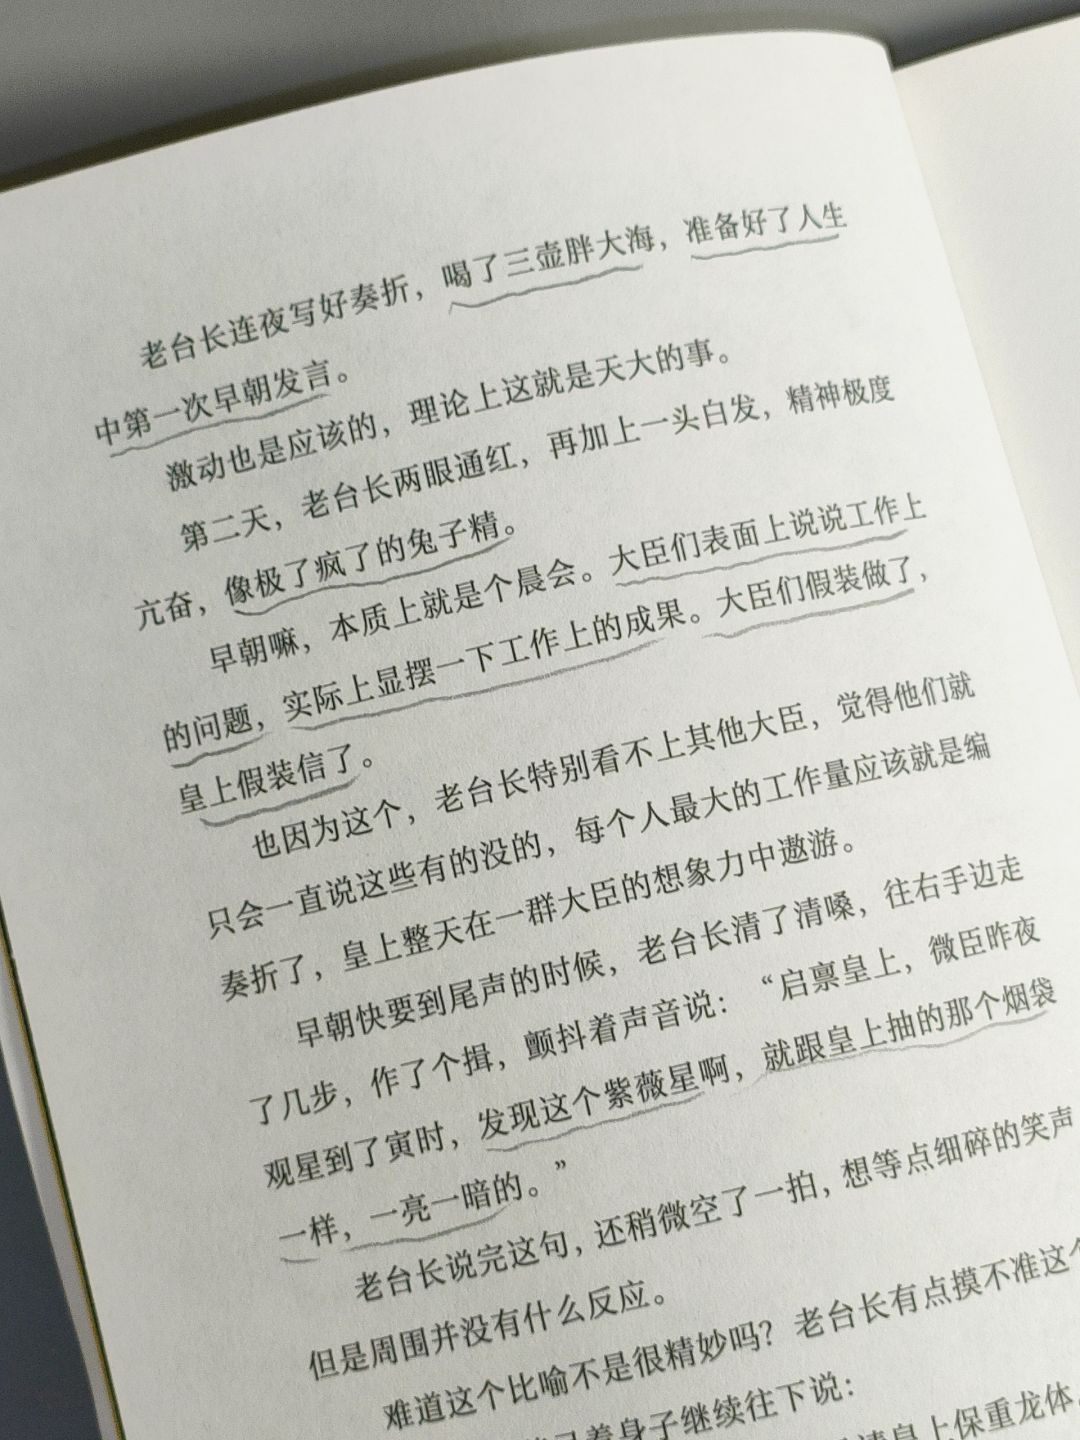 老台长连夜写好奏折，喝了三壶胖大海，准备好了人生
中第一次早朝发言。
激动也是应该的，理论上这就是天大的事。
第二天，老台长两眼通红，再加上一头白发，精神极度
亢奋，像极了疯了的兔子精。
早朝嘛，本质上就是个晨会。大臣们表面上说说工作上
的问题，实际上显摆一下工作上的成果。大臣们假装做了，
皇上假装信了。
也因为这个，老台长特别看不上其他大臣，觉得他们就
只会一直说这些有的没的，每个人最大的工作量应该就是编
奏折了，皇上整天在一群大臣的想象力中遨游。
早朝快要到尾声的时候，老台长清了清嗓，往右手边走
了几步，作了个揖，颤抖着声音说：“启禀皇上，微臣昨夜
观星到了寅时，发现这个紫薇星啊，就跟皇上抽的那个烟袋
一样，一亮一暗的。”
老台长说完这句，还稍微空了一拍，想等点细碎的笑声
但是周围并没有什么反应。
难道这个比喻不是很精妙吗？老台长有点摸不准这个
着身子继续往下说：
请皇上保重龙体，